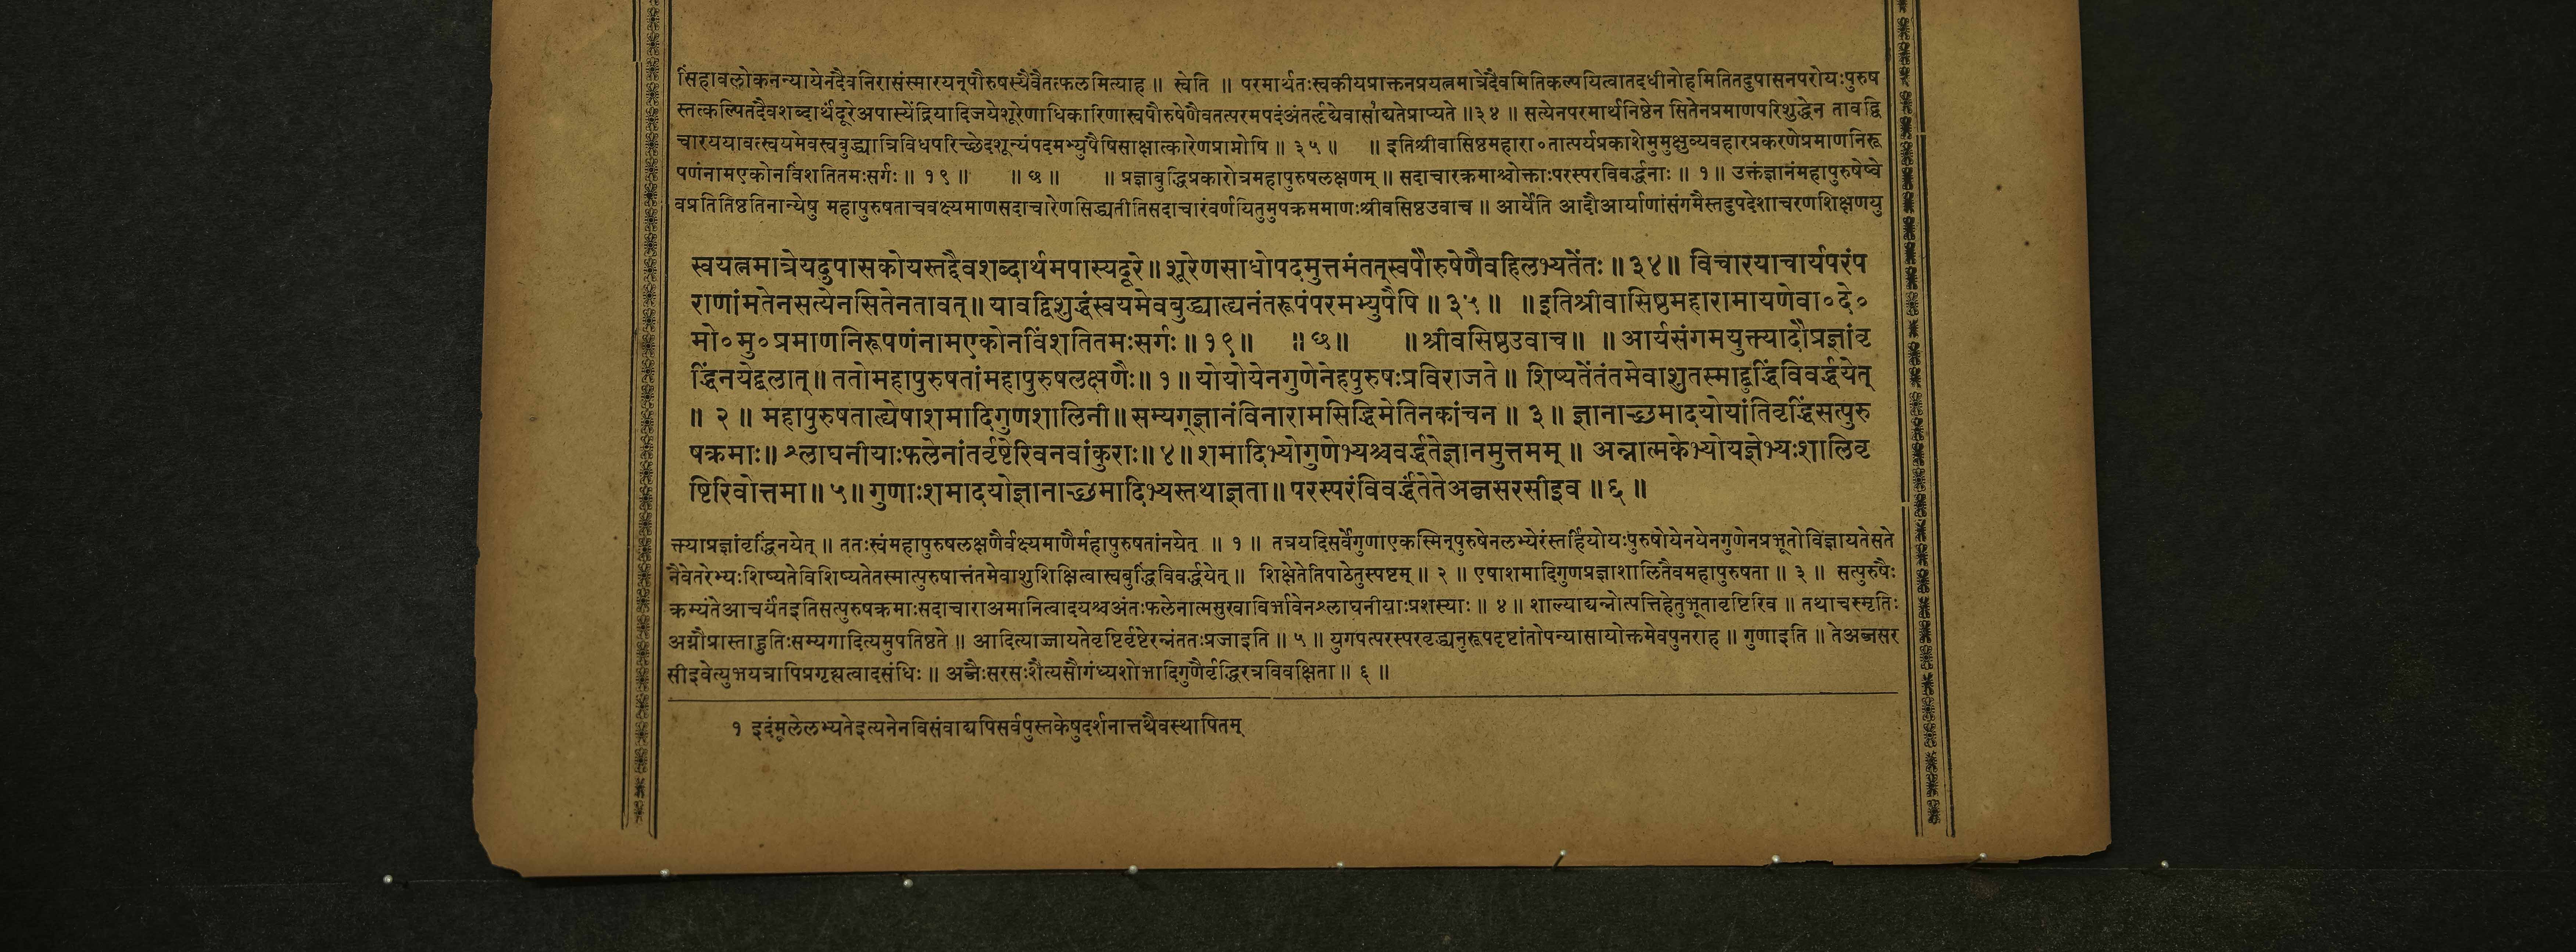 सिंहावलोकनन्यायेनदैवनिरासंस्मारयन्पौरुषस्यैवैतत्फलमित्याह ॥ स्वेति ॥ परमार्थतःस्वकीयप्राक्तनप्रयत्नमात्रेदैवमितिकल्पयित्वातदधीनोहमितितदुपासनपरोयःपुरुष
स्तत्कल्पितदैवशब्दार्थंदूरेअपास्येंद्रियादिजयेशूरेणाधिकारिणास्वपौरुषेणैवतत्परमपदंअंतर्हृद्येवासाद्यतेप्राप्यते ॥३४॥ सत्येनपरमार्थनिष्ठेन सितेनप्रमाणपरिशुद्धेन तावद्वि
चारययावत्स्वयमेवस्वबुद्ध्यात्रिविधपरिच्छेदशून्यंपदमभ्युपैषिसाक्षात्कारेणप्राप्नोषि ॥ ३५ ॥ ॥ इतिश्रीवासिष्ठमहारा०तात्पर्यप्रकाशेमुमुक्षुव्यवहारप्रकरणेप्रमाणनिरू
पणंनामएकोनविंशतितमःसर्गः ॥ १९ ॥ ॥ छ ॥ ॥ प्रज्ञाबुद्धिप्रकारोत्रमहापुरुषलक्षणम् ॥ सदाचारक्रमाश्चोक्ताःपरस्परविवर्द्धनाः ॥ १ ॥ उक्तंज्ञानंमहापुरुषेष्वे
वप्रतितिष्ठतिनान्येषु महापुरुषताचवक्ष्यमाणसदाचारेणसिद्ध्यतीतिसदाचारंवर्णयितुमुपक्रममाणःश्रीवसिष्ठउवाच ॥ आर्येति आदौआर्याणांसंगमैस्तदुपदेशाचरणशिक्षणयु
स्वयत्नमात्रेयदुपासकोयस्तद्दैवशब्दार्थमपास्यदूरे॥शूरेणसाधोपदमुत्तमंतत्स्वपौरुषेणैवहिलभ्यतेंतः॥३४॥ विचारयाचार्यपरंप
राणांमतेनसत्येनसितेनतावत्॥यावद्विशुद्धंस्वयमेवबुद्ध्यात्यनंतरूपंपरमभ्युपैषि॥३५॥ ॥इतिश्रीवासिष्ठमहारामायणेवा०दे०
मो०मु०प्रमाणनिरूपणंनामएकोनविंशतितमःसर्गः॥१९॥ ॥छ॥ ॥श्रीवसिष्ठउवाच॥ ॥आर्यसंगमयुक्त्यादौप्रज्ञांवृ
द्धिंनयेद्बलात्॥ततोमहापुरुषतांमहापुरुषलक्षणैः॥१॥योयोयेनगुणेनेहपुरुषःप्रविराजते॥ शिष्यतेंतंतमेवाशुतस्माद्बुद्धिंविवर्द्धयेत्
॥ २ ॥ महापुरुषतात्द्येषाशमादिगुणशालिनी॥सम्यग्ज्ञानंविनारामसिद्धिमेतिनकांचन॥ ३॥ ज्ञानाच्छमादयोयांतिवृद्धिंसत्पुरु
षक्रमाः॥श्लाघनीयाःफलेनांतर्वृष्टेरिवनवांकुराः॥४॥शमादिभ्योगुणेभ्यश्चवर्द्धतेज्ञानमुत्तमम्॥ अन्नात्मकेभ्योयज्ञेभ्यःशालिवृ
ष्टिरिवोत्तमा॥५॥गुणाःशमादयोज्ञानाच्छमादिभ्यस्तथाज्ञता॥परस्परंविवर्द्धंतेतेअब्जसरसीइव॥६॥
क्त्याप्रज्ञांवृद्धिंनयेत् ॥ ततःस्वंमहापुरुषलक्षणैर्वक्ष्यमाणैर्महापुरुषतांनयेत् ॥ १ ॥ तत्रयदिसर्वेगुणाएकस्मिन्पुरुषेनलभ्येरंस्तर्हियोयःपुरुषोयेनयेनगुणेनप्रभूतोविज्ञायतेसते
नैवेतरेभ्यःशिष्यतेविशिष्यतेतस्मात्पुरुषात्तंतमेवाशुशिक्षित्वास्वबुद्धिंविवर्द्धयेत् ॥ शिक्षेतेतिपाठेतुस्पष्टम् ॥ २ ॥ एषाशमादिगुणप्रज्ञाशालितैवमहापुरुषता ॥ ३ ॥ सत्पुरुषैः
क्रम्यंतेआचर्यंतइतिसत्पुरुषक्रमाःसदाचाराअमानित्वादयश्चअंतःफलेनात्मसुखाविर्भावेनश्लाघनीयाःप्रशस्याः ॥ ४ ॥ शाल्याद्यन्नोत्पत्तिहेतुभूतावृष्टिरिव ॥ तथाचस्मृतिः
अग्नौप्रास्ताहुतिःसम्यगादित्यमुपतिष्ठते ॥ आदित्याज्जायतेवृष्टिर्वृष्टेरन्नंततःप्रजाइति ॥ ५ ॥ युगपत्परस्परवृद्ध्यनुरूपदृष्टांतोपन्यासायोक्तमेवपुनराह ॥ गुणाइति ॥ तेअब्जसर
सीइवेत्युभयत्रापिप्रगृह्यत्वादसंधिः ॥ अब्जैःसरसःशैत्यसौगंध्यशोभादिगुणैर्वृद्धिरत्रविवक्षिता ॥ ६ ॥
१ इदंमूलेलभ्यतेइत्यनेनविसंवाद्यपिसर्वपुस्तकेषुदर्शनात्तथैवस्थापितम्